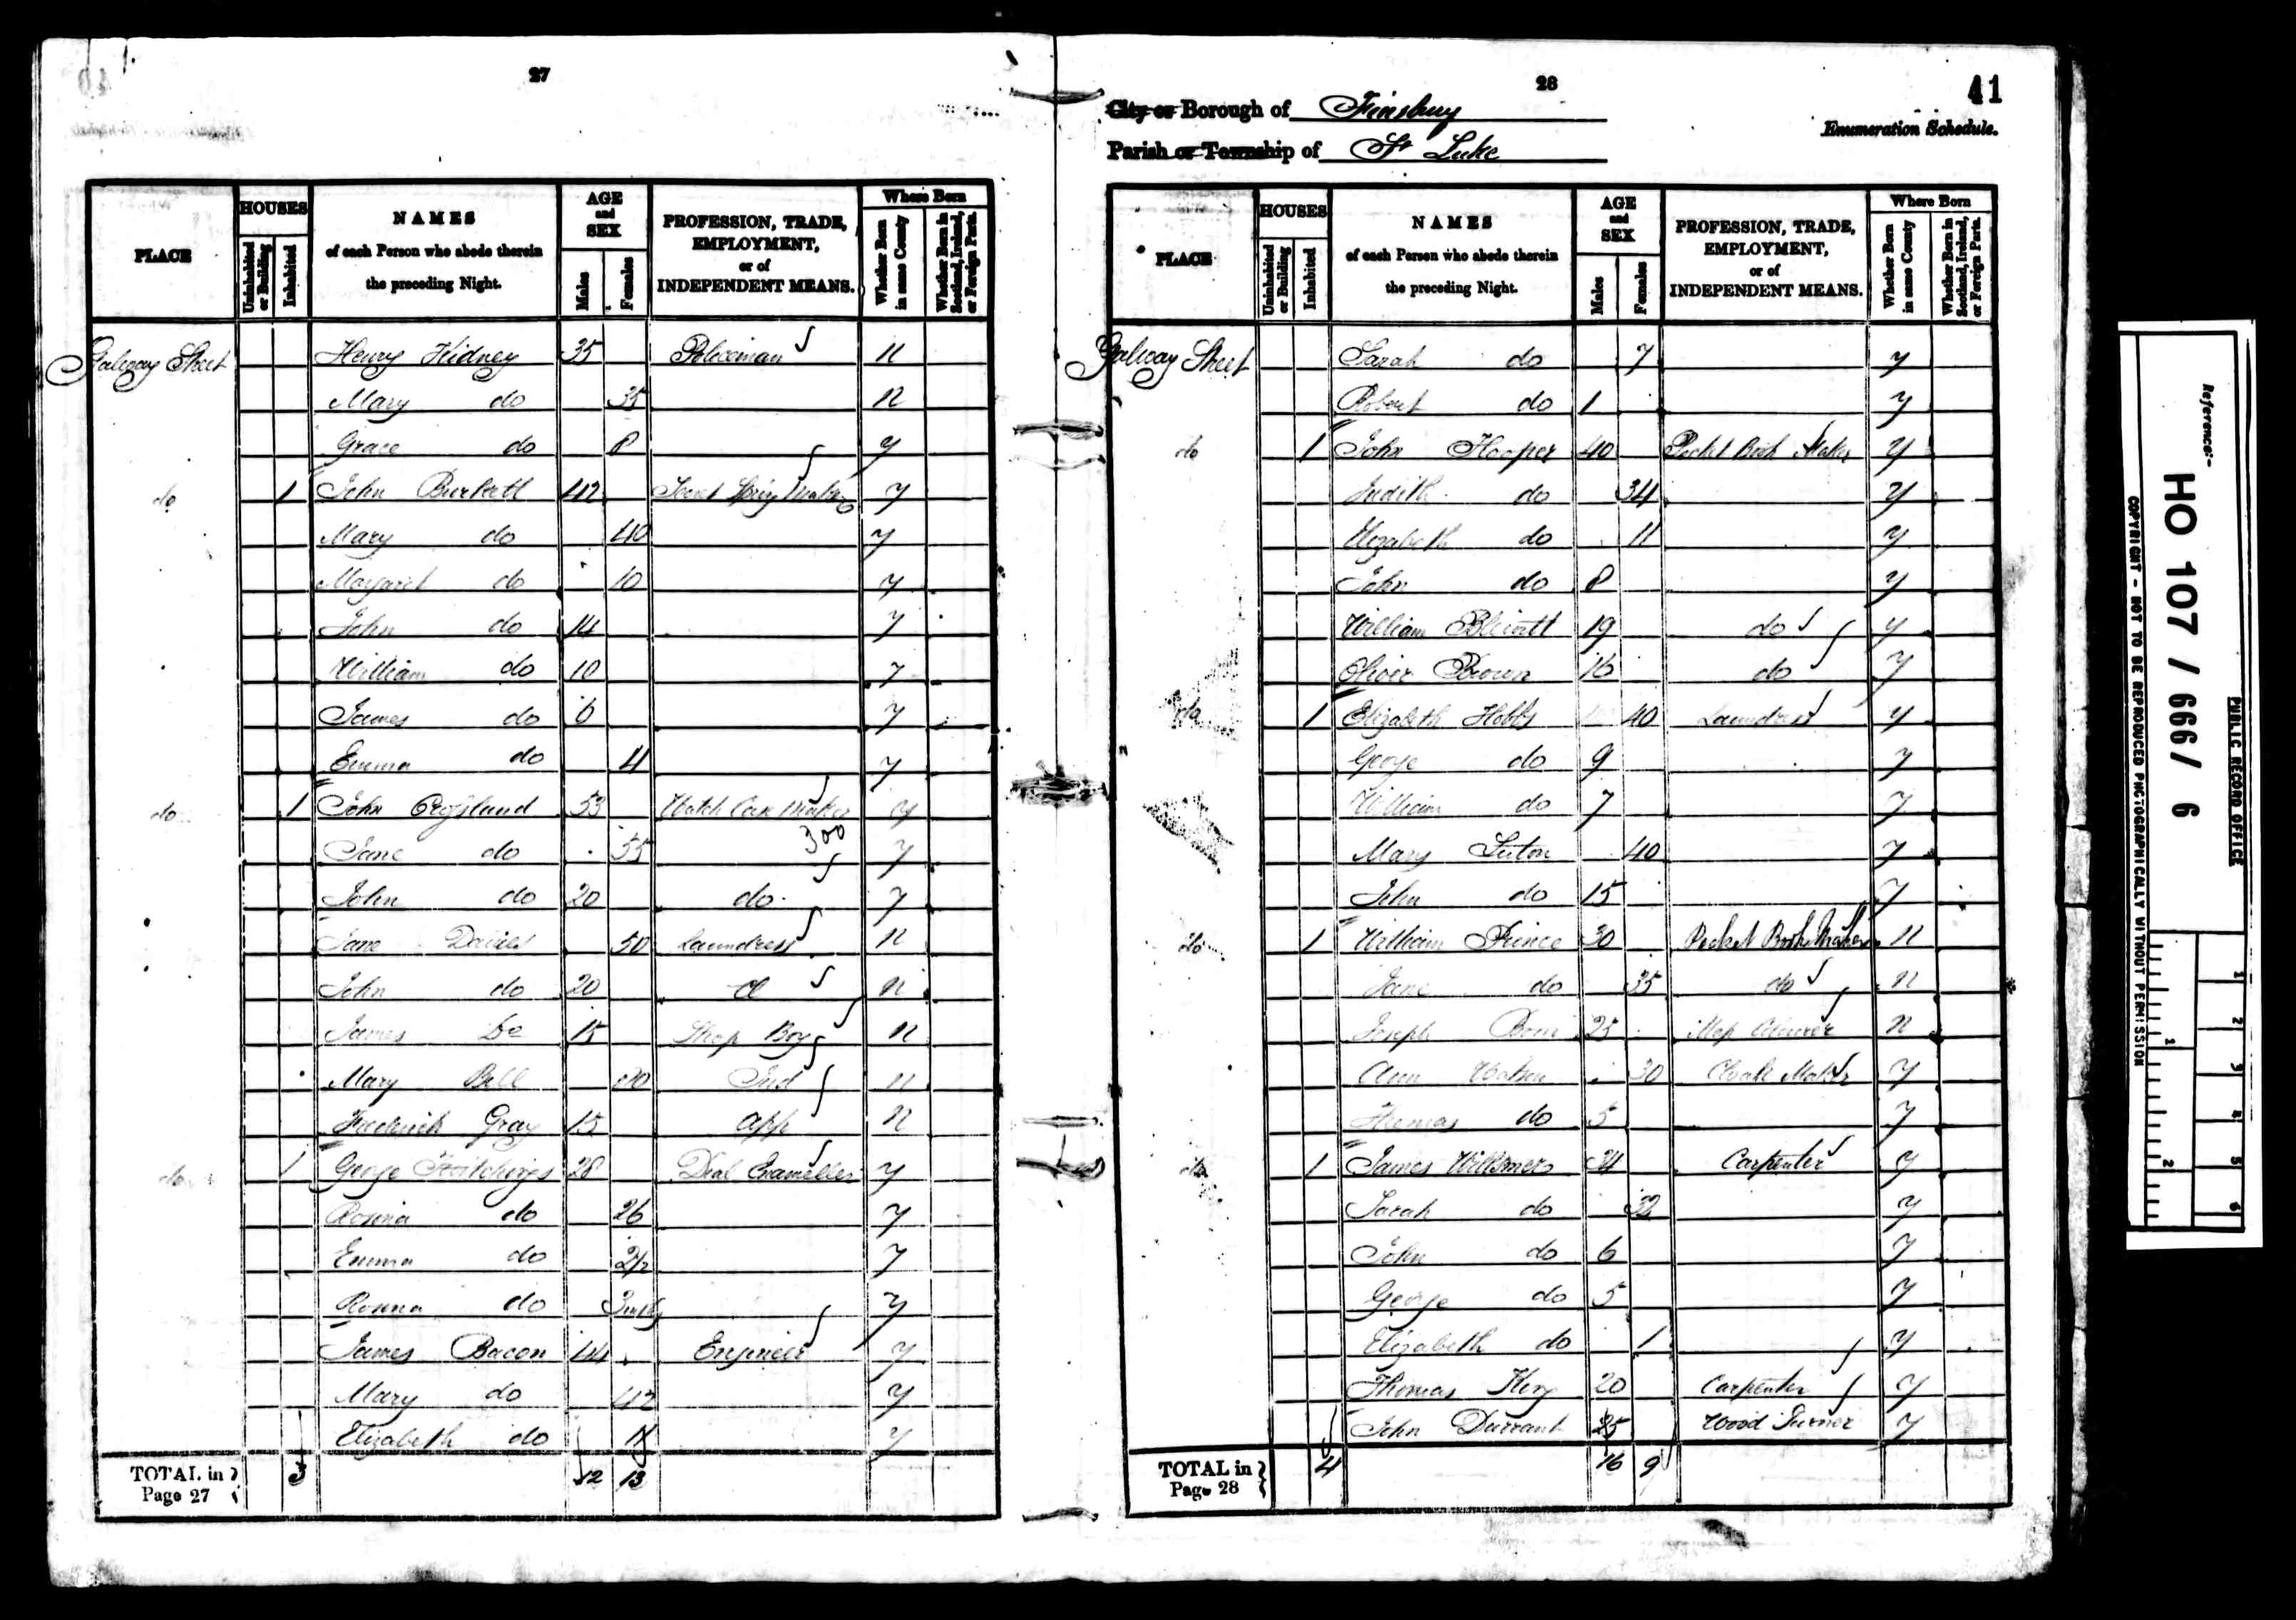 27
HOUSES
NAMES
AGE
and
SEX
PROFESSION, TRADE,
EMPLOYMENT,
or of
INDEPENDENT MEANS.
Where Born
PLACE
Uninhabited
or Building
Inhabited
of each Person who abode therein
the preceding Night.
Males
Females
Whether Born
in same County
Whether Born in
Scotland, Ireland,
or Foreign Parts.
Galway Street Henry Kidney 35 Policeman N
Mary do 35 N
Grace do 8 y
do 1 John 42 y
Mary do 40 y
Margaret do 10 y
John do 14 y
William do 10 y
James do 6 y
Emma do 4 y
do 1 John Crossland 53 Watch Case Maker y
300
Jane do 55 y
John do 20 do y
Jane Davies 50 Laundress N
John do 20 N
James Do 15 Shop Boy N
Mary Bell Ind N
Frederick Gray 15 App N
do 1 George 28 Dial Enameller y
Rosina do 26 y
Emma do 2 y
Rosina do y
James Bacon 44 Engineer y
Mary do 42 y
Elizabeth do y
TOTAL in
Page 27
3 12 13
28
41
City or Borough of Finsbury
Enumeration Schedule.
Parish or Township of St Luke
HOUSES
NAMES
AGE
and
SEX
PROFESSION, TRADE,
EMPLOYMENT,
or of
INDEPENDENT MEANS.
Where Born
PLACE
Uninhabited
or Building
Inhabited
of each Person who abode therein
the preceding Night.
Males
Females
Whether Born
in same County
Whether Born in
Scotland, Ireland,
or Foreign Parts.
Galway Street Sarah do 7 y
Robert do 1 y
do 1 John Hooper 40 Pocket Book Maker y
Judith do 34 y
Elizabeth do 11 y
John do 8 y
William 19 do y
Oliver Brown 16 do y
do 1 Elizabeth Hobbs 40 Laundress y
George do 9 y
William do 7 y
Mary 40 y
John do 15 y
do 1 William Prince 30 Pocket Book Maker N
Jane do 35 do N
Joseph 25 Map Colourer N
Ann 30 Cloak Maker y
Thomas do 5 y
do 1 James 34 Carpenter y
Sarah do 32 y
John do 6 y
George do 5 y
Elizabeth do 1 y
Thomas 20 Carpenter y
John Durrant 25 Wood Turner y
TOTAL in
Page 28
4 16 9
Reference:-
HO 107 / 666 / 6
PUBLIC RECORD OFFICE
COPYRIGHT - NOT TO BE REPRODUCED PHOTOGRAPHICALLY WITHOUT PERMISSION
1
2
3
4
5
6
1
2